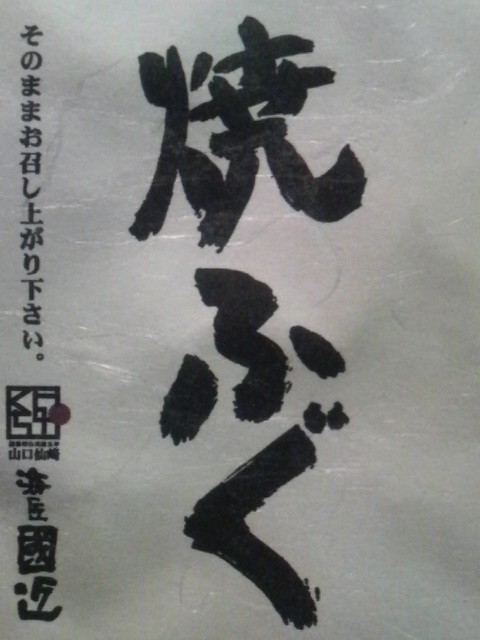 焼ふぐ
そのままお召し上がり下さい。
山口仙崎
海匠
國近